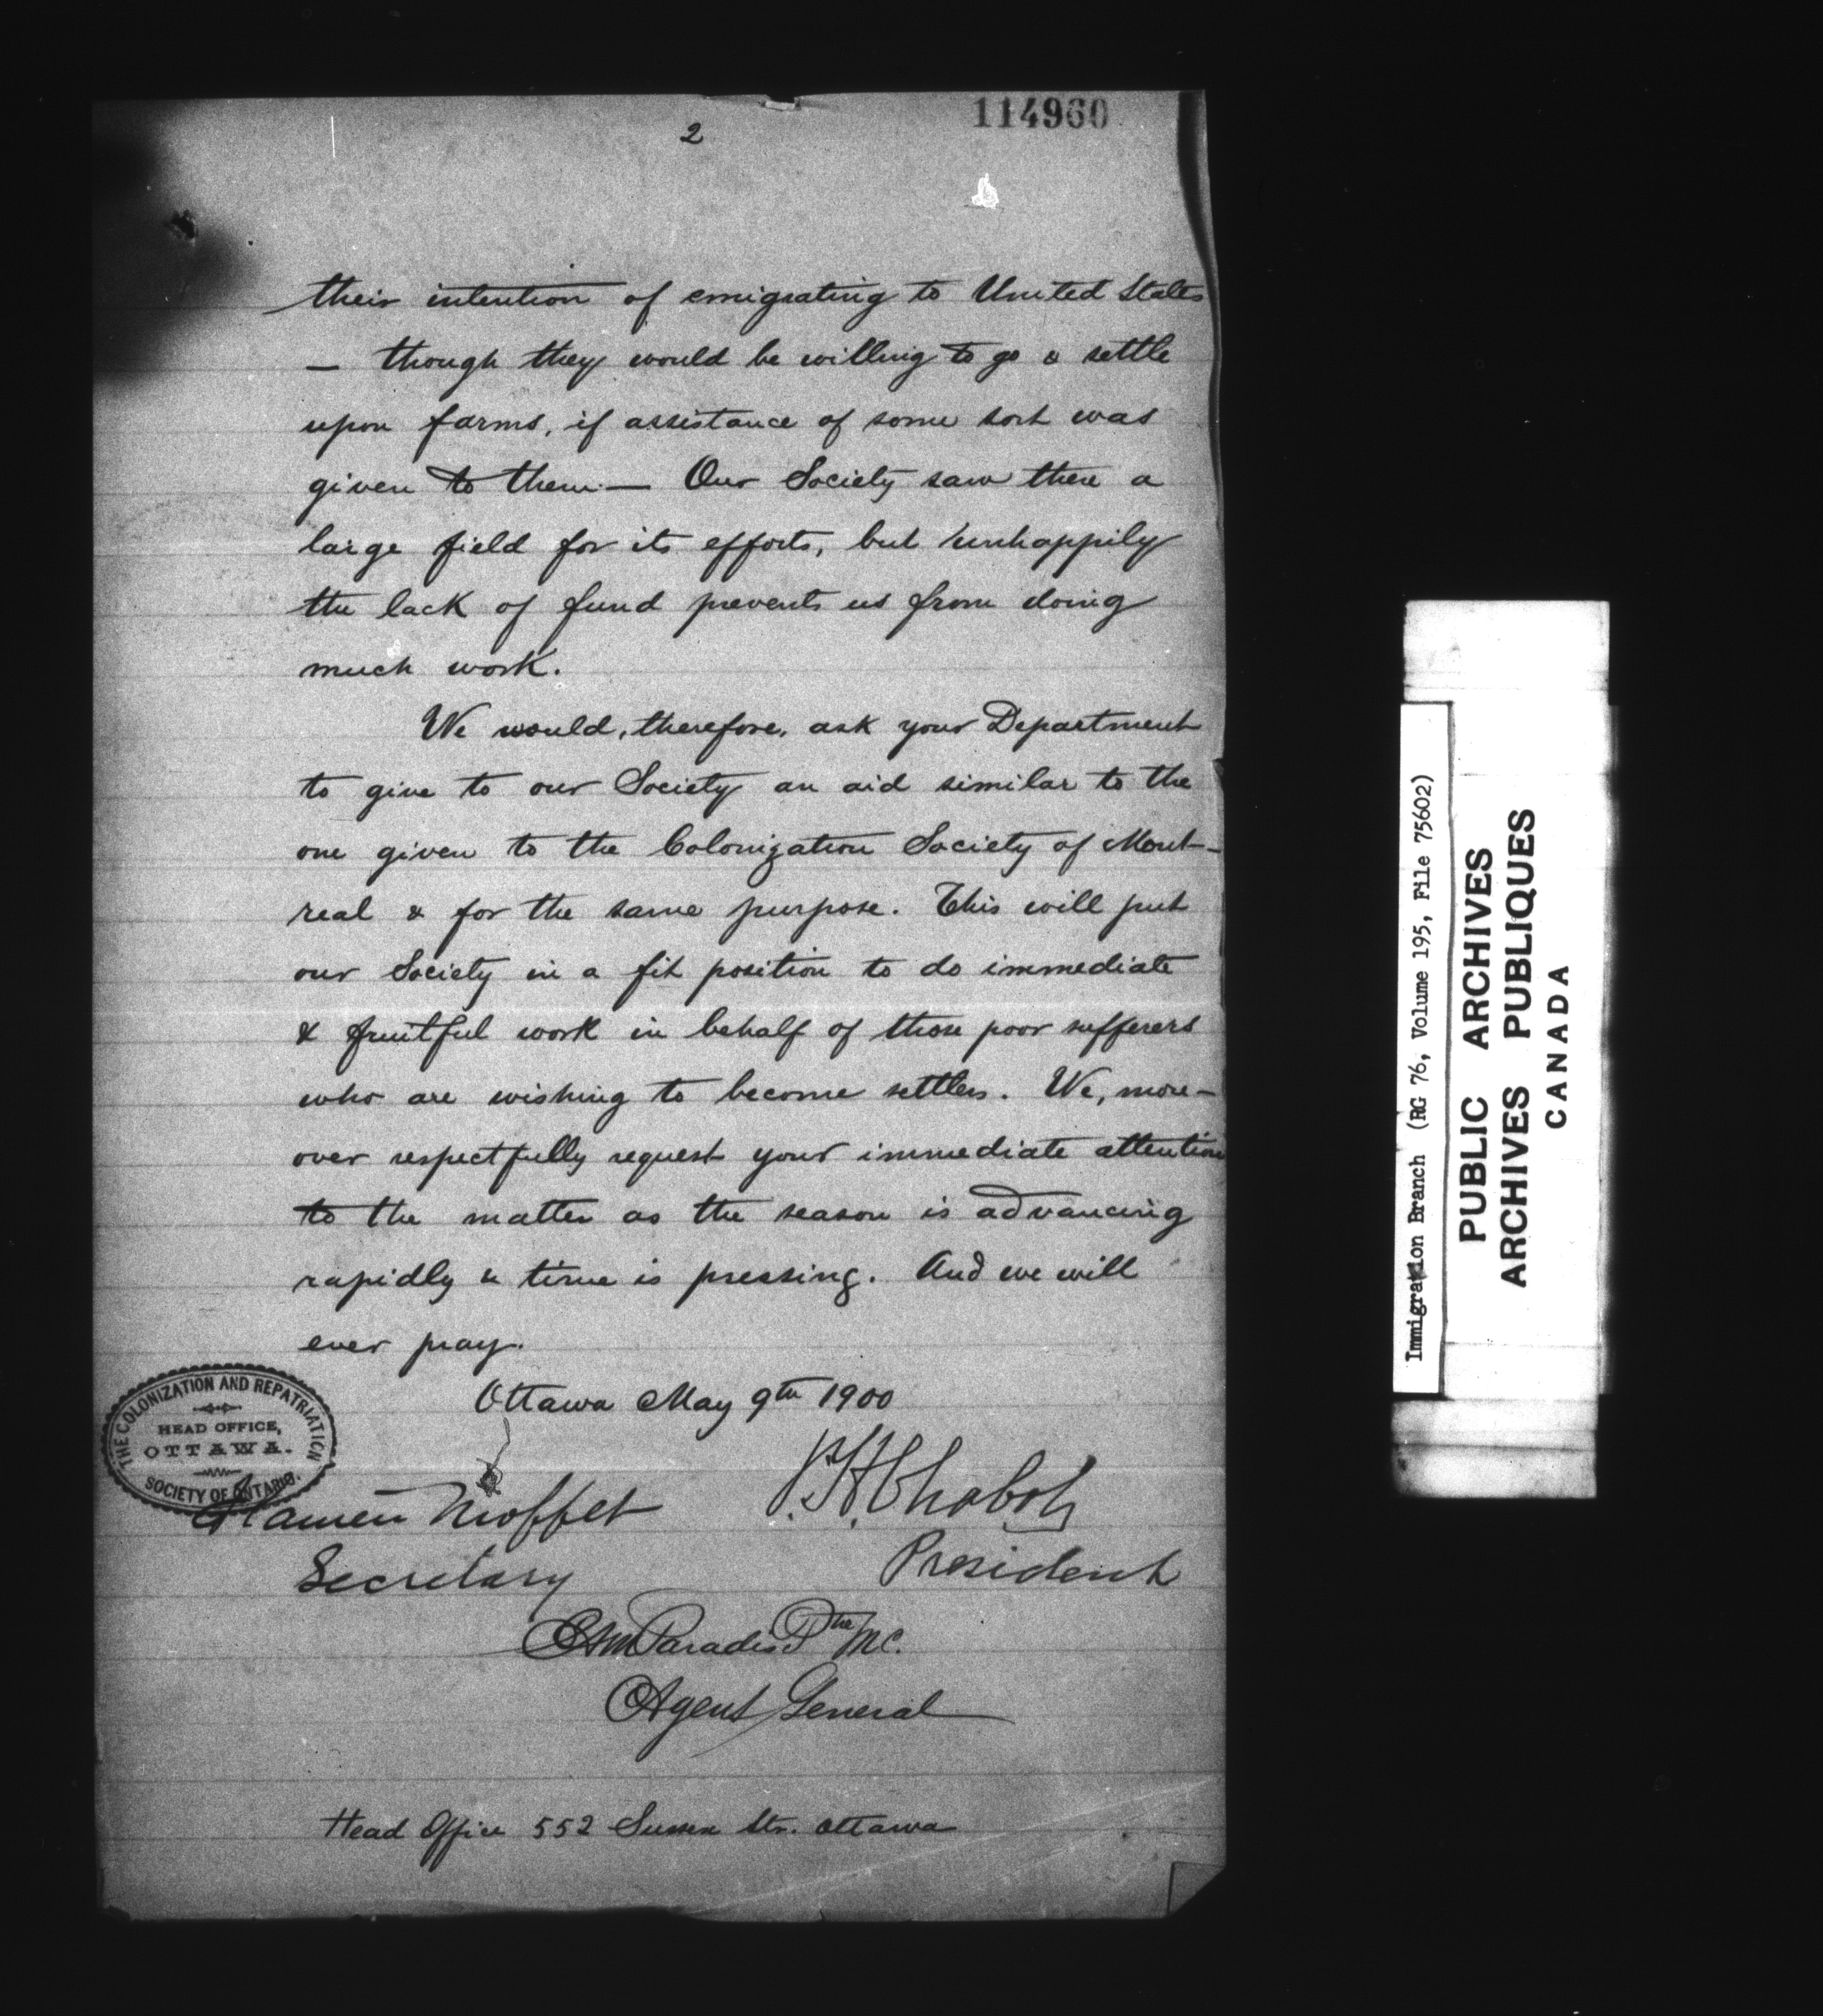 114960
2
their intention of emigrating to United States
— though they would be willing to go & settle
upon farms, if assistance of some sort was
given to them — Our Society saw there a
large field for its efforts, but unhappily
the lack of fund prevents us from doing
much work.
We would, therefore, ask your Department
to give to our Society an aid similar to the
one given to the Colonization Society of Mont-
real & for the same purpose. This will put
our Society in a fit position to do immediate
& fruitful work in behalf of those poor sufferers
who are wishing to become settlers. We, more-
over respectfully request your immediate attention
to the matter as the season is advancing
rapidly & time is pressing. And we will
ever pray.
Ottawa May 9th 1900
THE COLONIZATION AND REPATRIATION
HEAD OFFICE,
OTTAWA.
SOCIETY OF ONTARIO.
P.H. Chabot
President
Moffet
Secretary
Paradis Ptre M.C.
Agent General
Head Office 552 Sussex Str. Ottawa
Immigration Branch (RG 76, Volume 195, File 75602)
PUBLIC ARCHIVES
ARCHIVES PUBLIQUES
CANADA